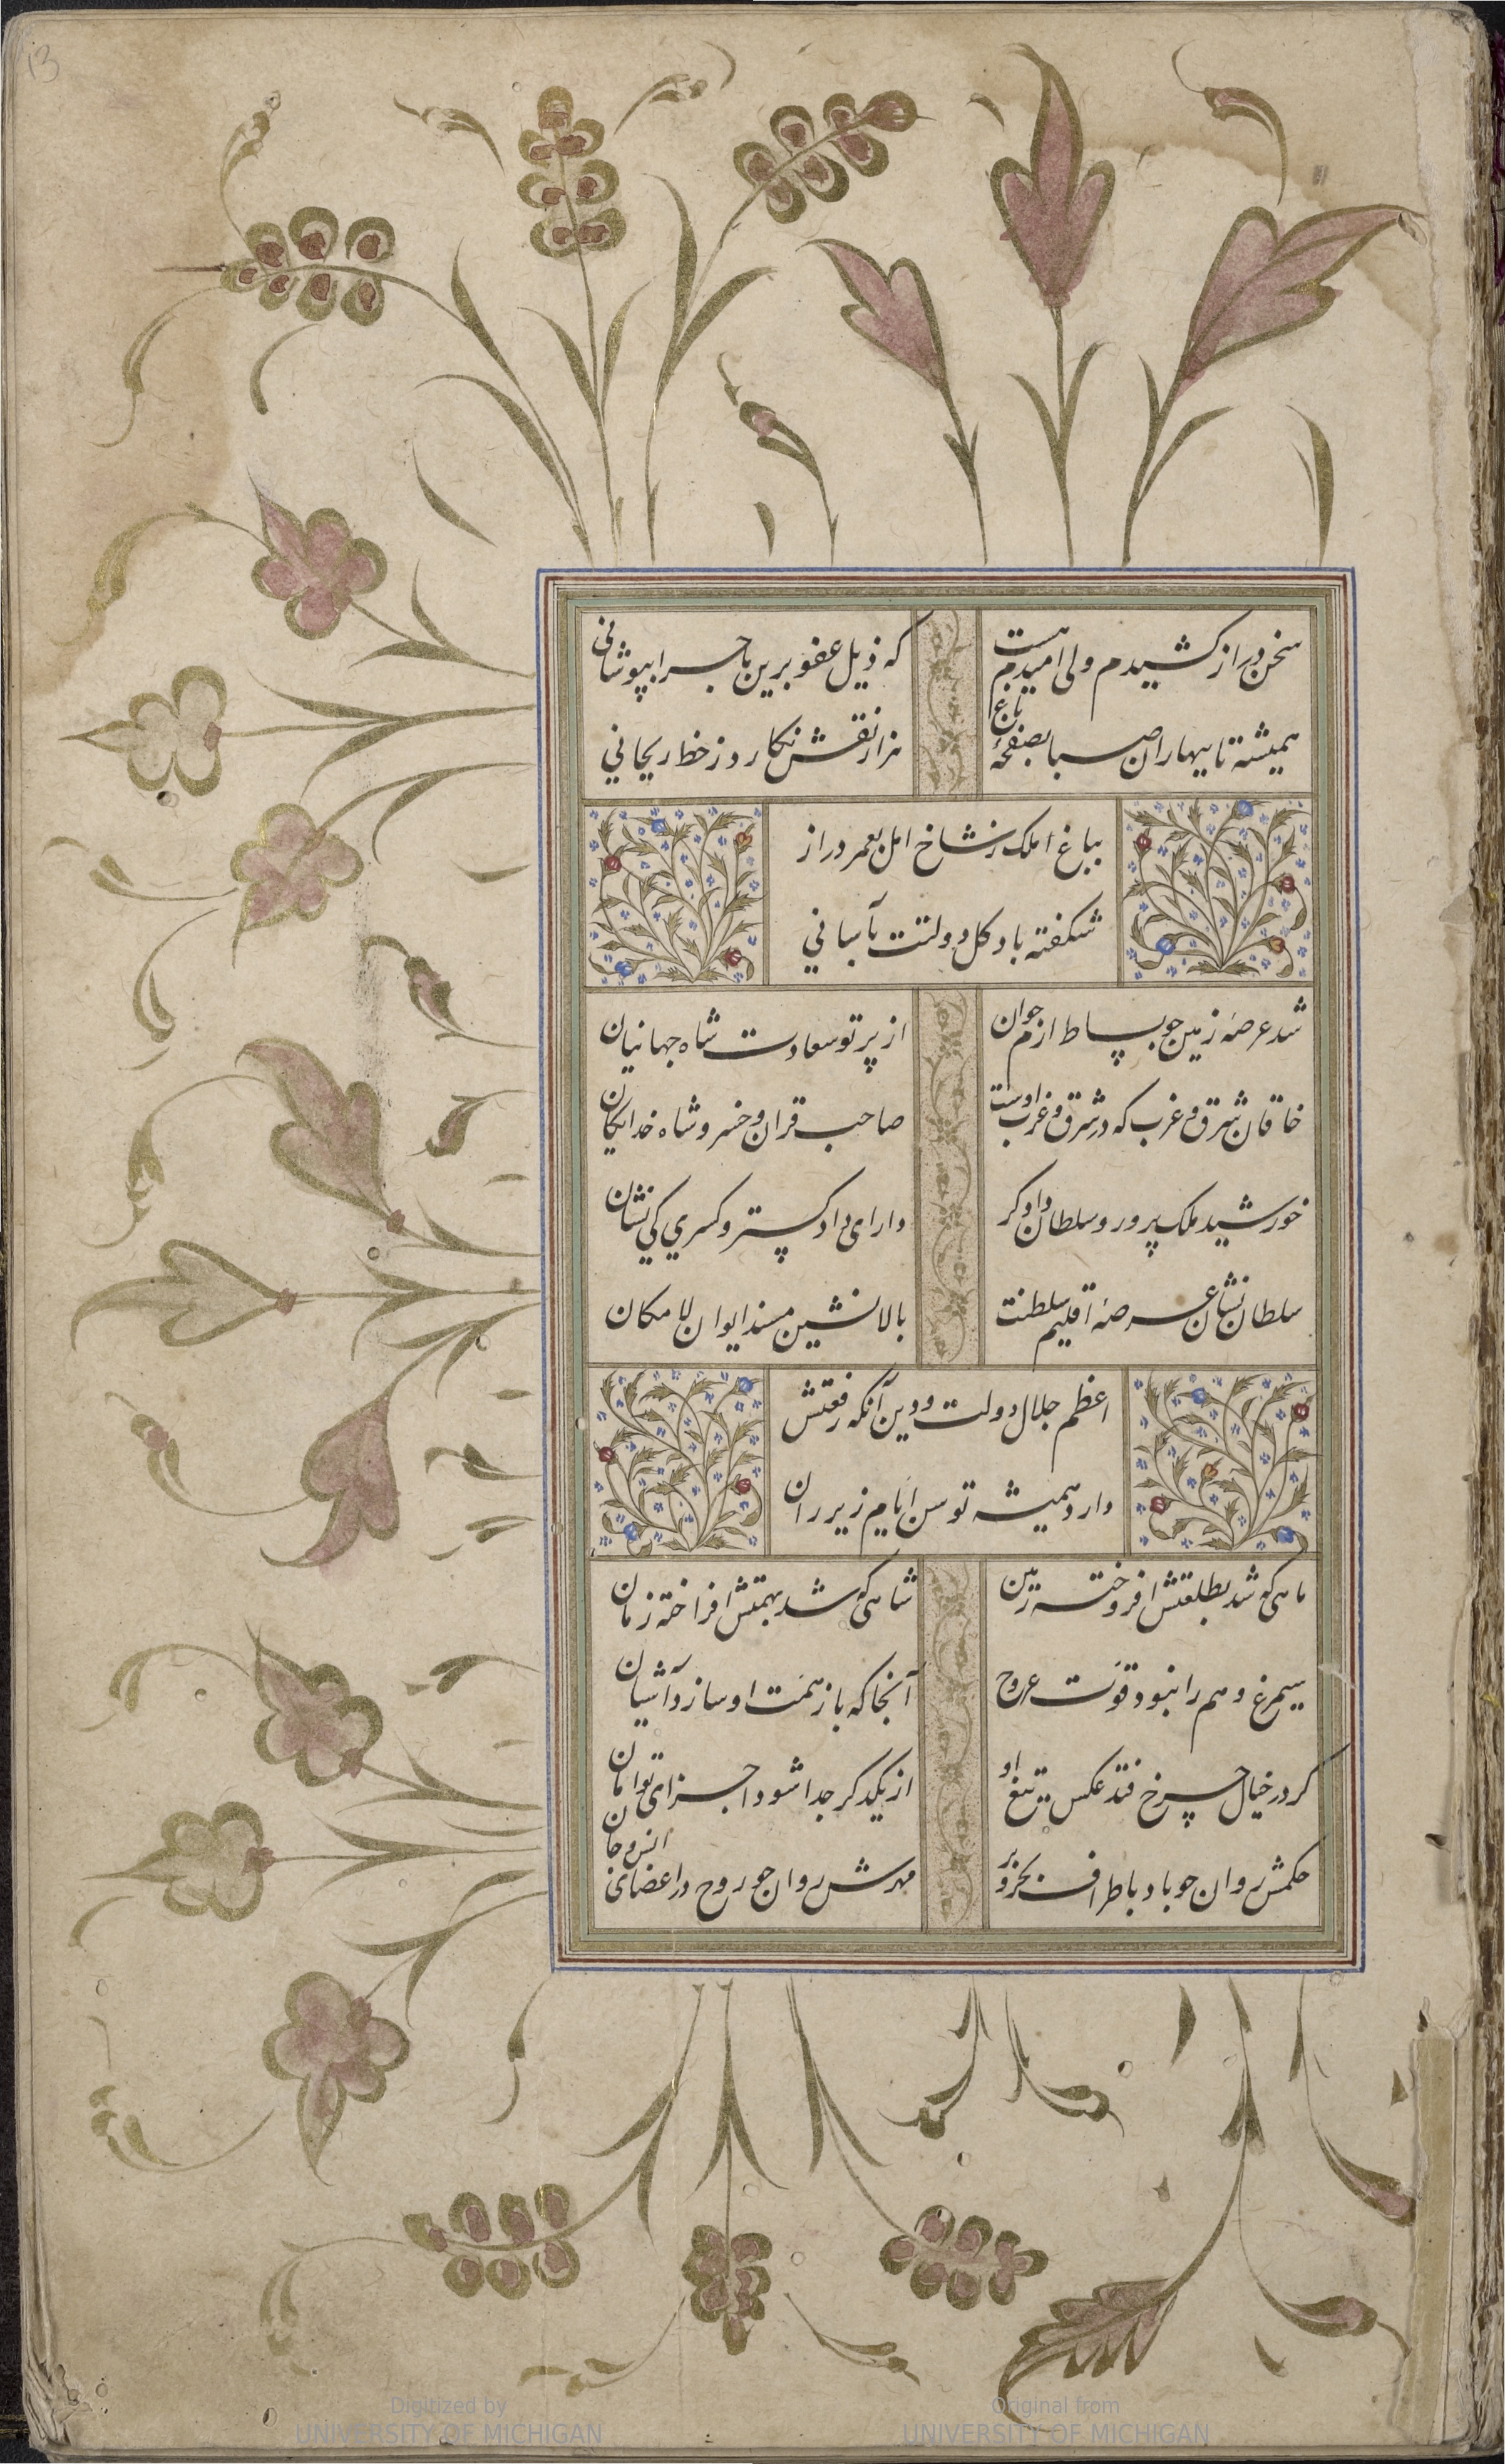 13
سخن دراز کشیدم ولی امیدم هست
که ذیل عفو برین ماجرا بپوشانی
همیشه تا ببهاران صبا بصفحهٔ باغ
هزار نقش نکارد ز خط ریحانی
بباغ املک ز شاخ امل بعمر دراز
شکفته باد کل دولتت بآسانی
شد عرصهٔ زمین جو بساط ارم جوان
از پرتو سعادت شاه جهانیان
خاقان شرق و غرب که در شرق و غرب اوست
صاحب قران و خسرو شاه خدایکان
خورشید ملک پرور و سلطان دادکر
دارای دادکستر و کسری کی نشان
سلطان نشان عرصهٔ اقلیم سلطنت
بالانشین مسند ایوان لامکان
اعظم جلال دولت و دین آنکه رفعتش
دارد همیشه توسن ایام زیر ران
ماهی که شد بطلعتش افروخته زمین
شاهی که شد بهمتش افراخته زمان
سیمرغ وهم را نبود قوت عروج
آنجا که باز همت او سازد آشیان
کر در خیال چرخ فتد عکس تیغ او
از یکدکر جدا شود اجزای توامان
حکمش روان جو باد باطراف بحر و بر
مهرش روان جو روح در اعضای انس و جان
Digitized by
UNIVERSITY OF MICHIGAN
Original from
UNIVERSITY OF MICHIGAN